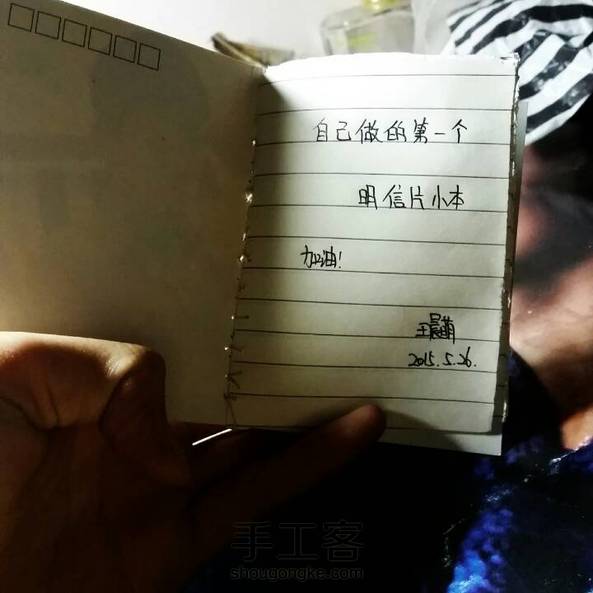 自己做的第一个
明信片小本
加油!
王晨萌
2015.5.26.
手工客
shougongke.com